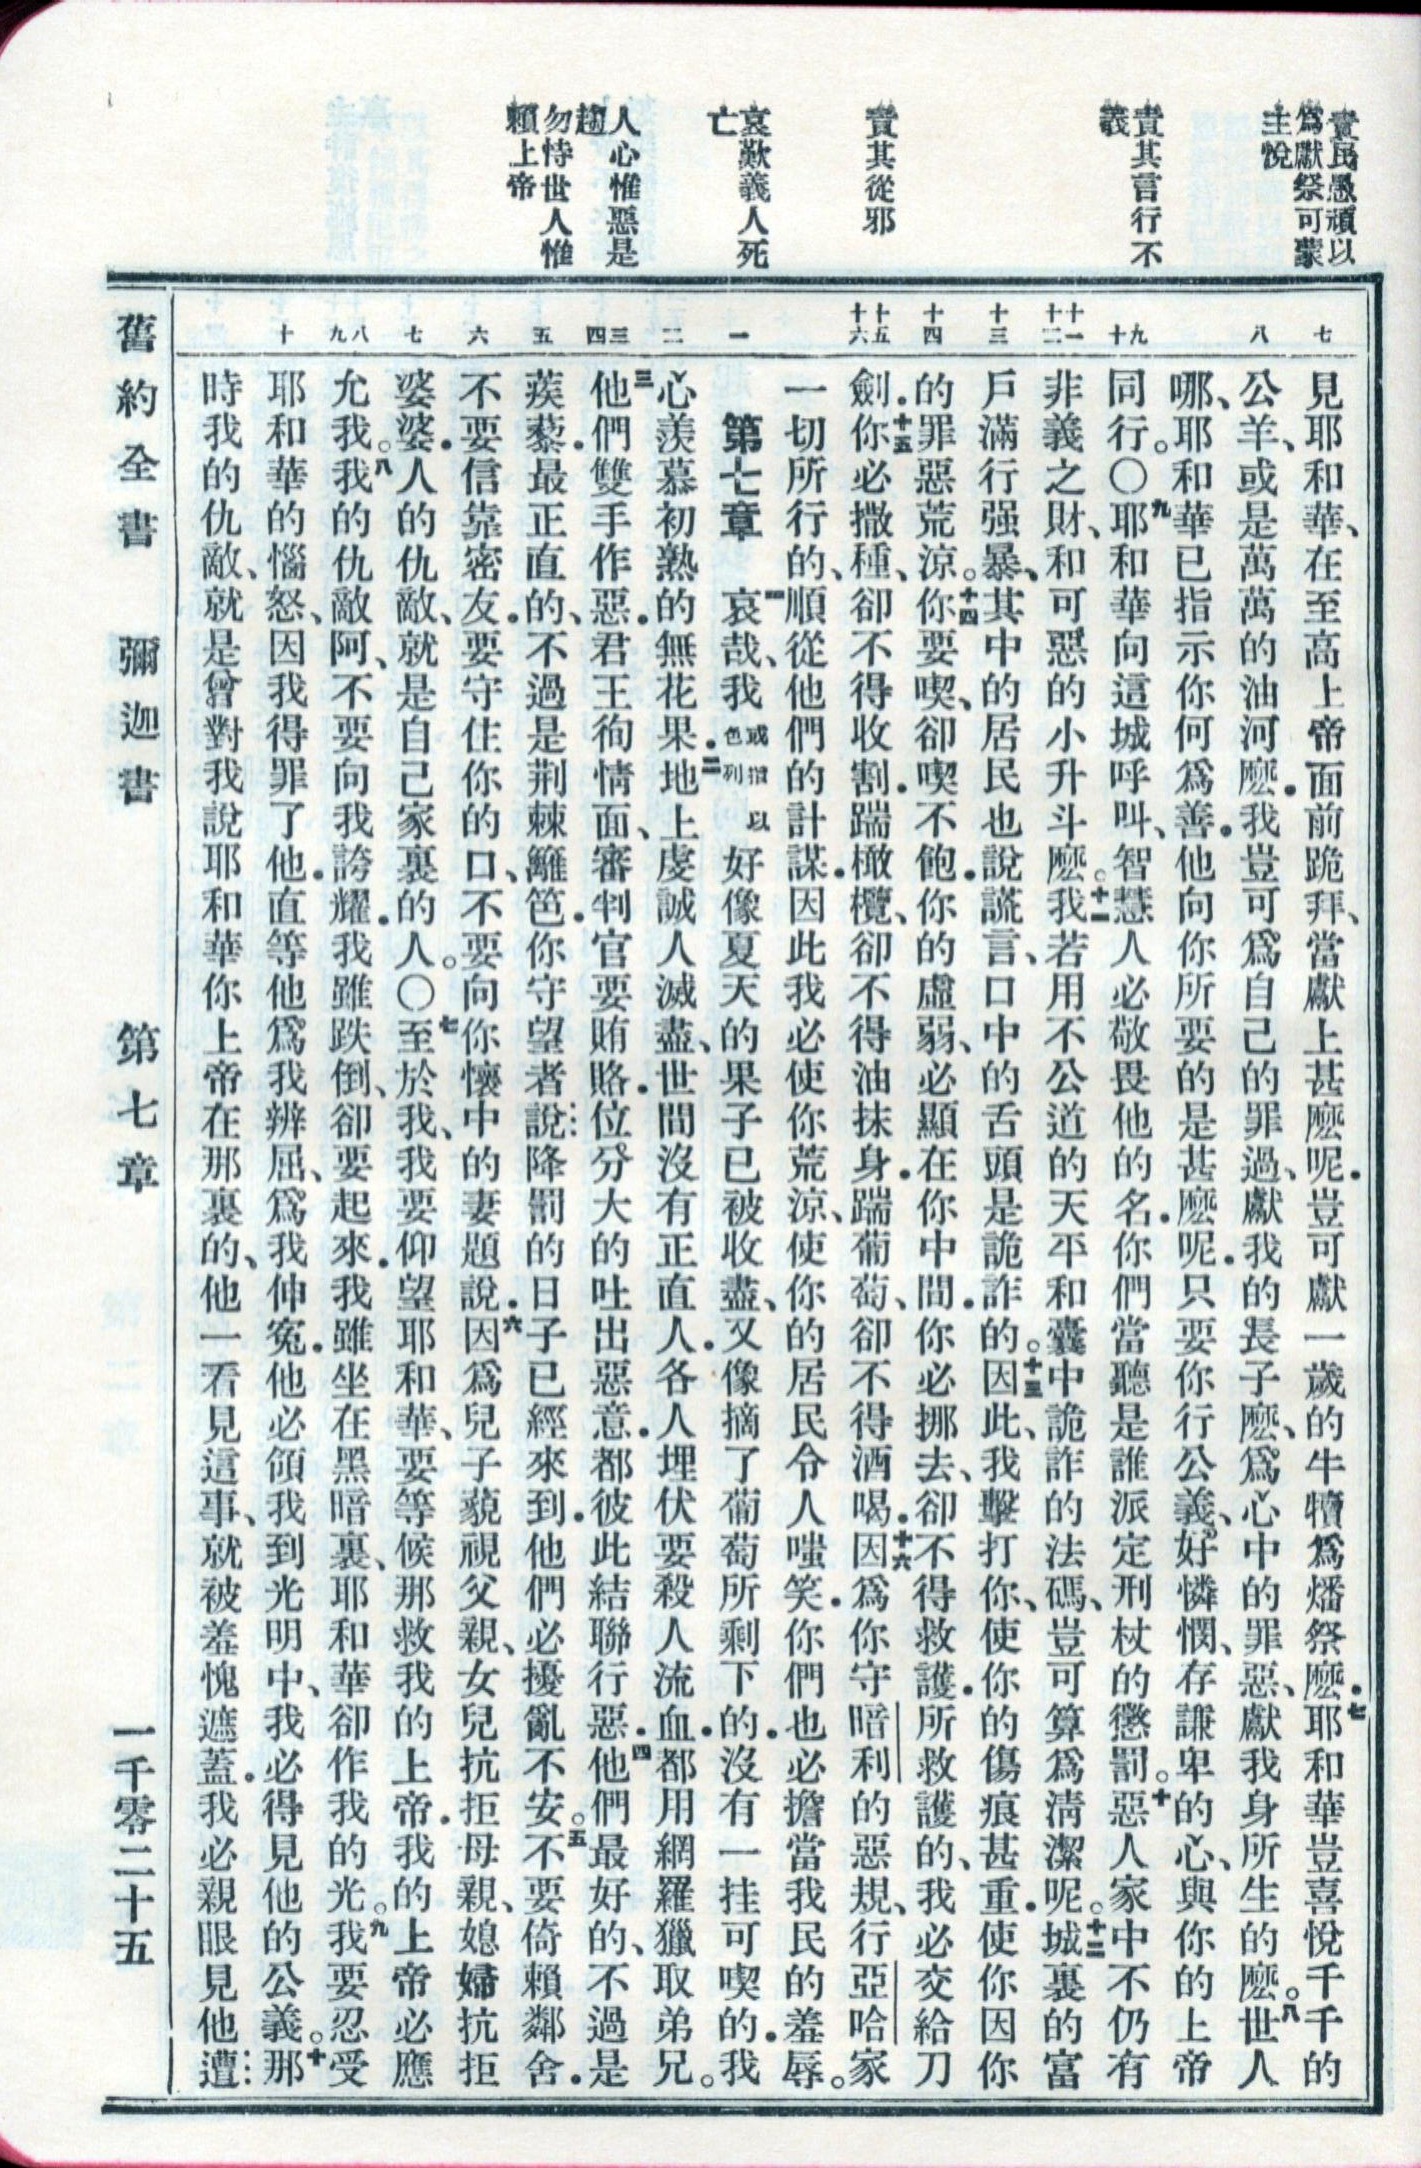 責民愚頑以
爲獻祭可蒙
主悅
責其言行不
義
責其從邪
哀歎義人死
亡
人心惟惡是
趨
勿恃世人惟
賴上帝
七
八
九
十
十一
十二
十三
十四
十五
十六
一
二
三
四
五
六
七
八
九
十
見耶和華、在至高上帝面前跪拜、當獻上甚麽呢．豈可獻一歲的牛犢爲燔祭麽．七耶和華豈喜悅千千的
公羊、或是萬萬的油河麽．我豈可爲自己的罪過、獻我的長子麽、爲心中的罪惡、獻我身所生的麽。八世人
哪、耶和華已指示你何爲善．他向你所要的是甚麽呢．只要你行公義、好憐憫、存謙卑的心、與你的上帝
同行。○九耶和華向這城呼叫、智慧人必敬畏他的名．你們當聽是誰派定刑杖的懲罰。十惡人家中不仍有
非義之財、和可惡的小升斗麽。十一我若用不公道的天平和囊中詭詐的法碼、豈可算爲淸潔呢。十二城裏的富
戶滿行强暴、其中的居民也說謊言、口中的舌頭是詭詐的。十三因此、我擊打你、使你的傷痕甚重．使你因你
的罪惡荒涼。十四你要喫、卻喫不飽．你的虛弱、必顯在你中間．你必挪去、卻不得救護．所救護的、我必交給刀
劍．十五你必撒種、卻不得收割．踹橄欖、卻不得油抹身．踹葡萄、卻不得酒喝．十六因爲你守暗利的惡規、行亞哈家
一切所行的、順從他們的計謀．因此我必使你荒涼、使你的居民令人嗤笑．你們也必擔當我民的羞辱。
第七章 一哀哉、我或指以色列好像夏天的果子已被收盡、又像摘了葡萄所剩下的．沒有一挂可喫的．我
心羨慕初熟的無花果．二地上虔誠人滅盡、世間沒有正直人．各人埋伏要殺人流血．都用網羅獵取弟兄。
三他們雙手作惡．君王徇情面、審判官要賄賂．位分大的吐出惡意．都彼此結聯行惡．四他們最好的、不過是
蒺藜．最正直的、不過是荆棘籬笆．你守望者說降罰的日子已經來到．他們必擾亂不安。五不要倚賴鄰舍．
不要信靠密友．要守住你的口、不要向你懷中的妻題說．六因爲兒子藐視父親、女兒抗拒母親、媳婦抗拒
婆婆．人的仇敵、就是自己家裏的人。○七至於我、我要仰望耶和華、要等候那救我的上帝．我的上帝必應
允我。八我的仇敵阿、不要向我誇耀．我雖跌倒、卻要起來．我雖坐在黑暗裏、耶和華卻作我的光。九我要忍受
耶和華的惱怒、因我得罪了他．直等他爲我辨屈、爲我伸冤．他必領我到光明中、我必得見他的公義。十那
時我的仇敵、就是曾對我說耶和華你上帝在那裏的、他一看見這事、就被羞愧遮蓋．我必親眼見他遭
舊約全書 彌迦書 第七章 一千零二十五